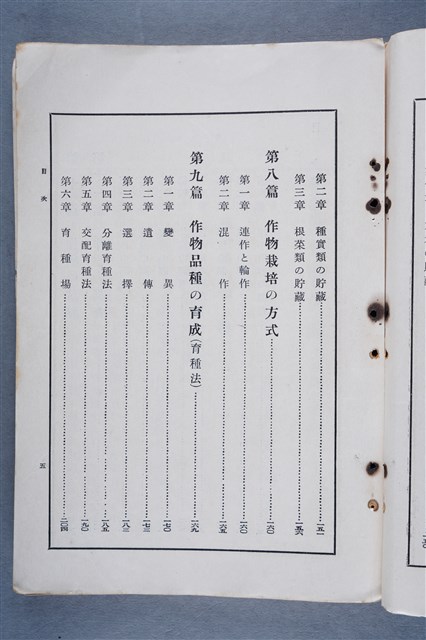 第二章 種實類の貯藏……一五一
第三章 根菜類の貯藏……一五六
第八篇 作物栽培の方式……一六〇
第一章 連作と輪作……一六〇
第二章 混作……一六五
第九篇 作物品種の育成(育種法)……一六九
第一章 變異……一七〇
第二章 遺傳……一七三
第三章 選擇……一八三
第四章 分離育種法……一八五
第五章 交配育種法……一九〇
第六章 育種場……二〇四
目次
五